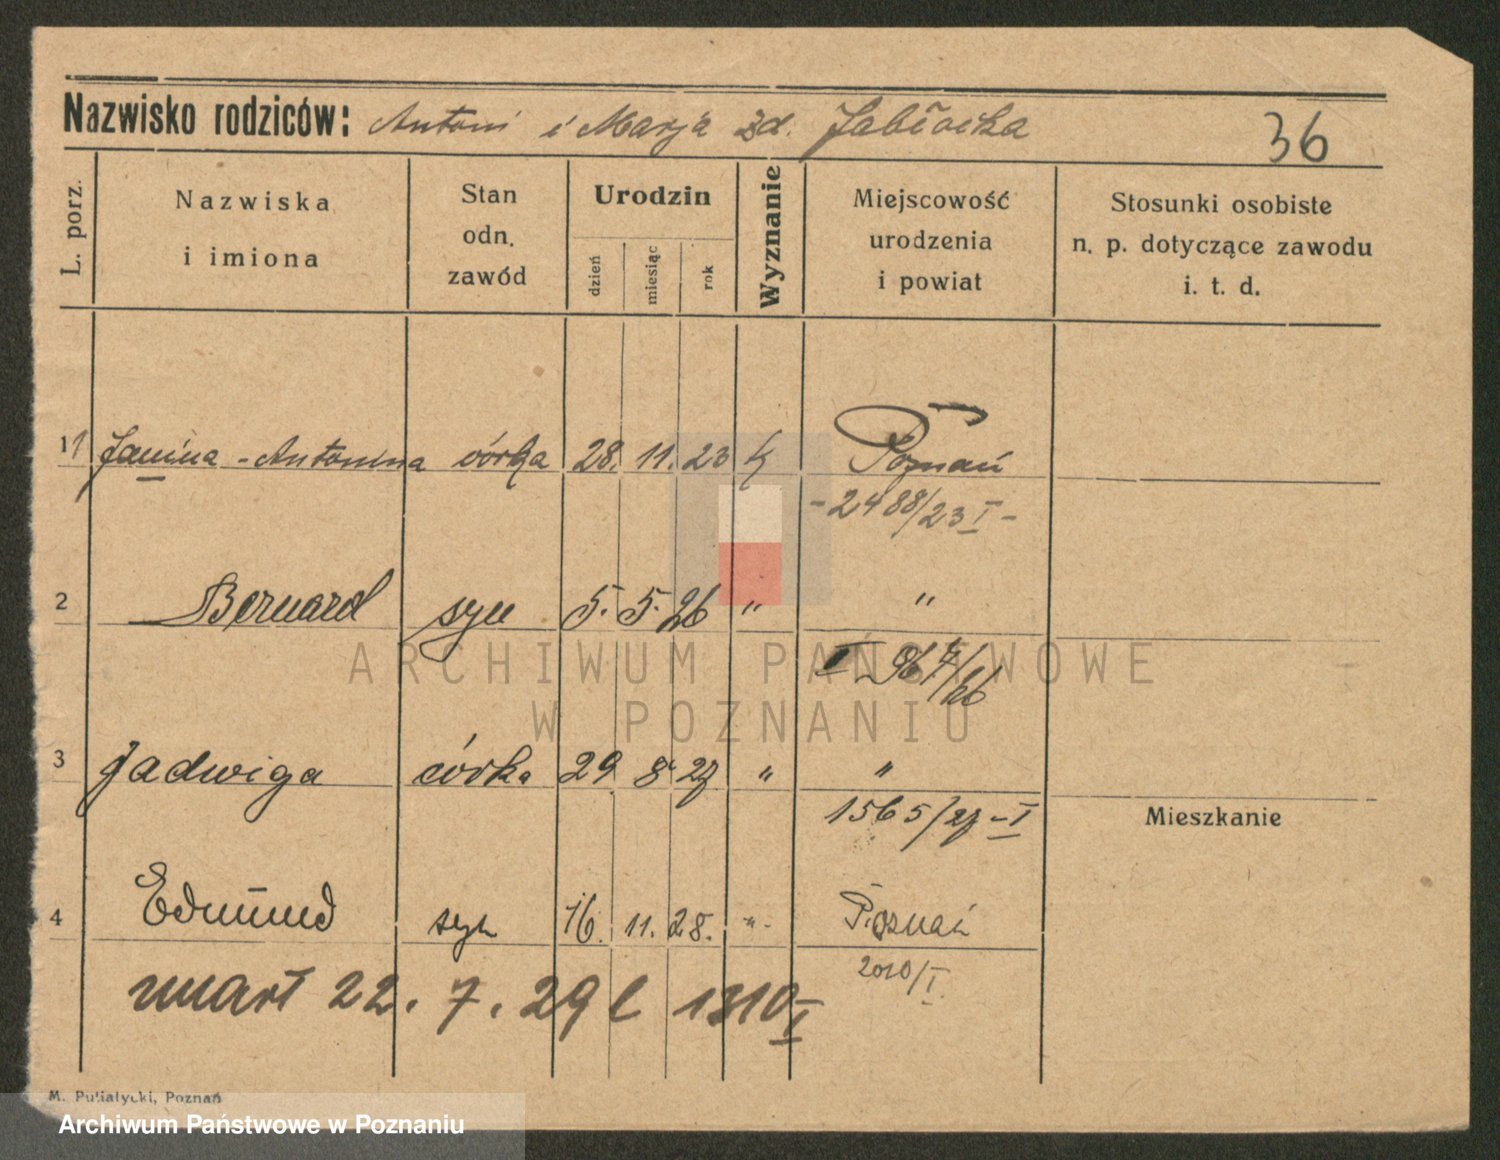 Nazwisko rodziców: Antoni i Marja zd. Jabłocka 36
L. porz. Nazwiska i imiona Stan odn. zawód Urodzin dzień miesiąc rok Wyznanie Miejscowość urodzenia i powiat Stosunki osobiste n. p. dotyczące zawodu i. t. d.
1 1 Janina - Antonina córka 28. 11. 23 k Poznań
- 2488/23 I -
2 Bernard syn 5. 5. 26 " "
I 967/26
3 Jadwiga córka 29 8 27 " "
1565/27 - I
Mieszkanie
4 Edmund syn 16. 11. 28. " Poznań
2010/I
umarł 22. 7. 29 l 1310 I
M. Putiatycki, Poznań
ARCHIWUM PAŃSTWOWE
W POZNANIU
Archiwum Państwowe w Poznaniu